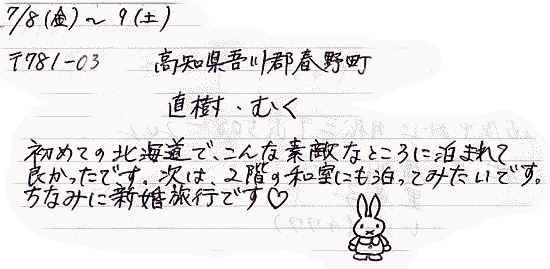 7/8(金)～9(土)
〒781-03 高知県吾川郡春野町
直樹・むく
初めての北海道で、こんな素敵なところに泊まれて
良かったです。次は、2階の和室にも泊ってみたいです。
ちなみに新婚旅行です♡